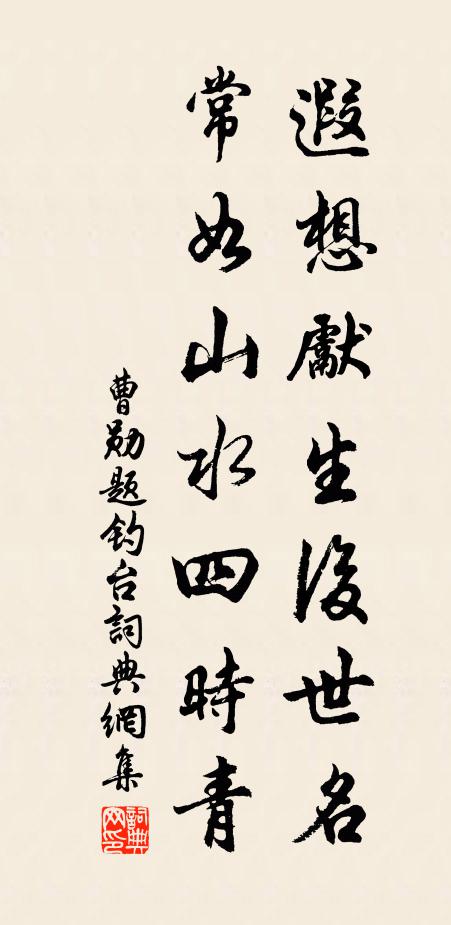 遐想獻生後世名
常如山水四時青
曹勛題釣台詞典網集
詞典網印